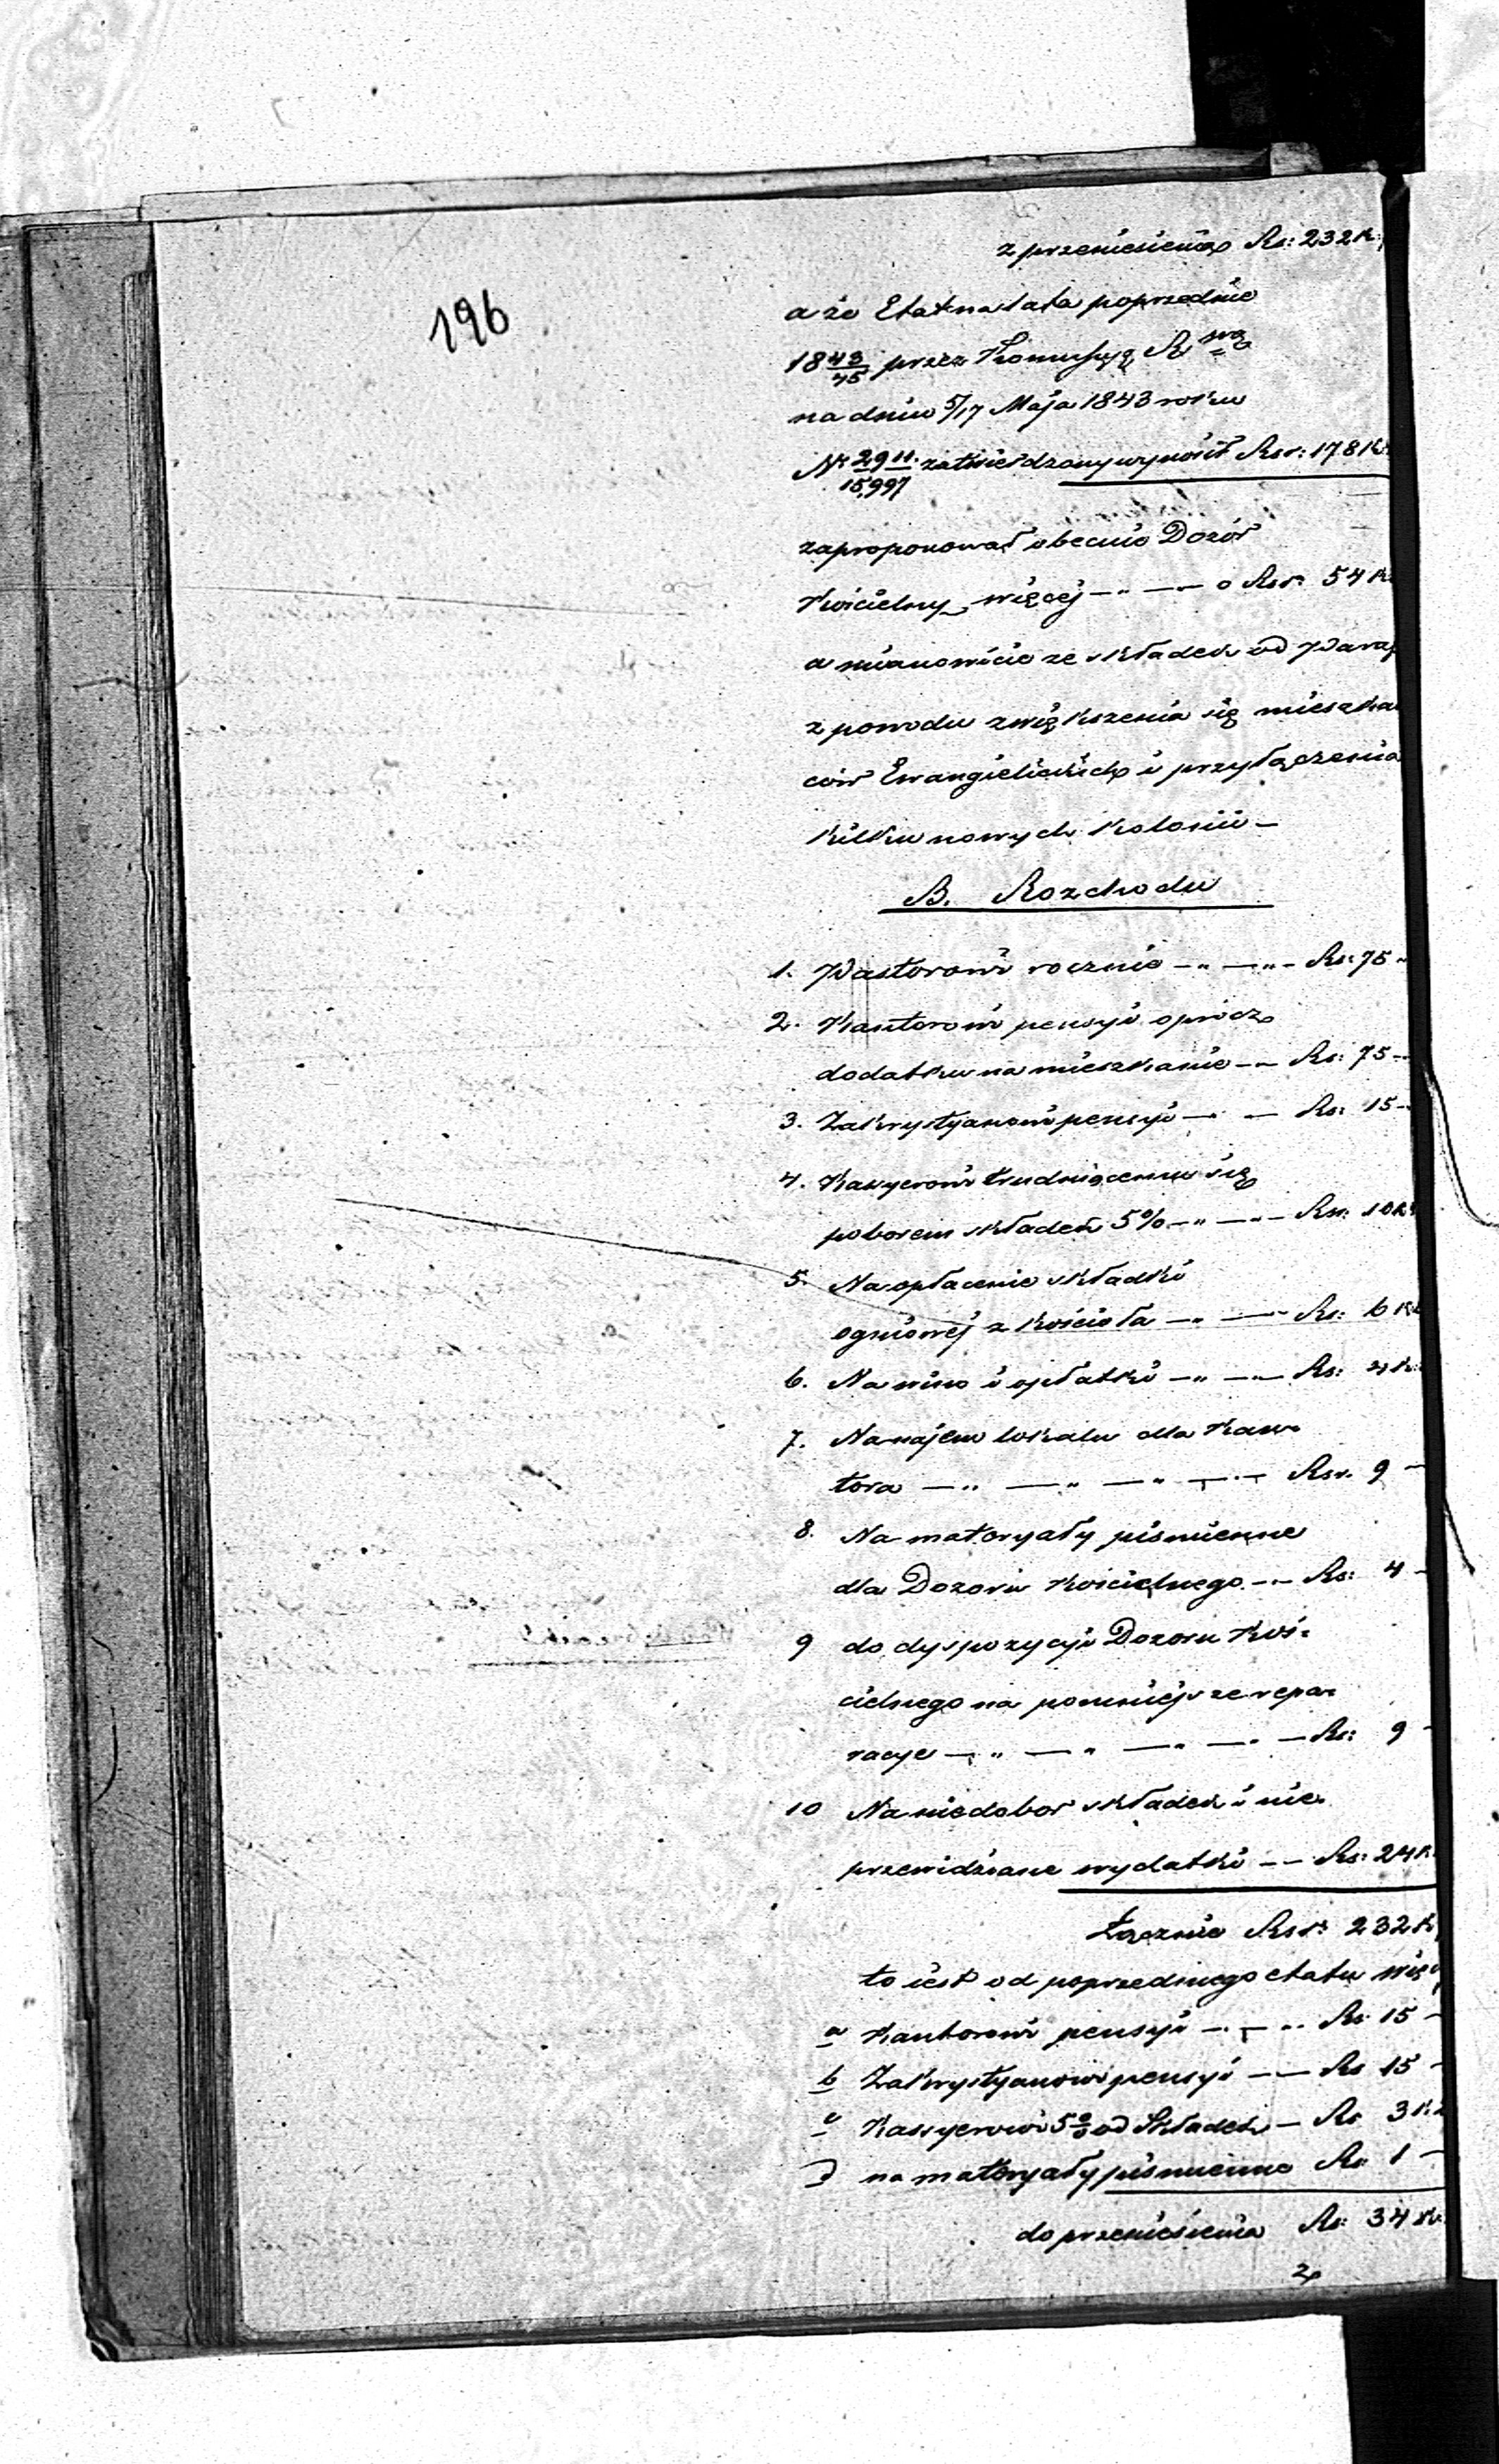 196
z przeniesienia Rs: 232 K:
a że Etat na lata poprzednie
18 43/45 przez Kommissyą R wą
na dniu 5/17 Maja 1843 roku
Nr 2911/15,997 zatwierdzony wynosił Rsr: 178 K.
zaproponował obecnie Dozór
Kościelny więcej — „ — — o Rsr. 54 K
a mianowicie ze składek od Paraf
z powodu zwiększenia się mieszkań
ców Ewangielickich i przyłączenia
kilku nowych kolonii —
B. Rozchodu
1. Pastorowi rocznie — „ — „ — Rs: 75 „
2. Kantorowi pensyi oprócz
dodatku na mieszkanie — — Rs: 75 —
3. Zakrystyanowi pensyi — — Rs: 15 —
4. Kassyerowi trudniącemu się
poborem składek 5% — „ — „ — Rsr. 10 K
5. Na opłacenie składki
ogniowej z kościoła — „ — Rs: 6 K
6. Na wino i opłatki — „ — „ — Rs: 4 K:
7. Na najem lokalu dla Kan-
tora — „ — „ — „ — „ — Rsr. 9 —
8. Na materyały piśmienne
dla Dozoru Kościelnego — — Rs: 4 —
9 do dyspozycyi Dozoru Koś-
cielnego na pomniejsze repa-
racye — „ — „ — „ — „ — Rs: 9 —
10 Na niedobór składek i nie-
przewidziane wydatki — — Rs: 24 K
Łącznie Rsr: 232 K
to iest od poprzedniego etatu więc
a Kantorowi pensyi — „ — „ Rs. 15 —
b Zakrystyanowi pensyi — — Rs 15 —
c Kassyerowi 5% od Składek — Rs 3 K
d na materyały piśmienne Rs 1 —
do przeniesienia Rs: 34 K: